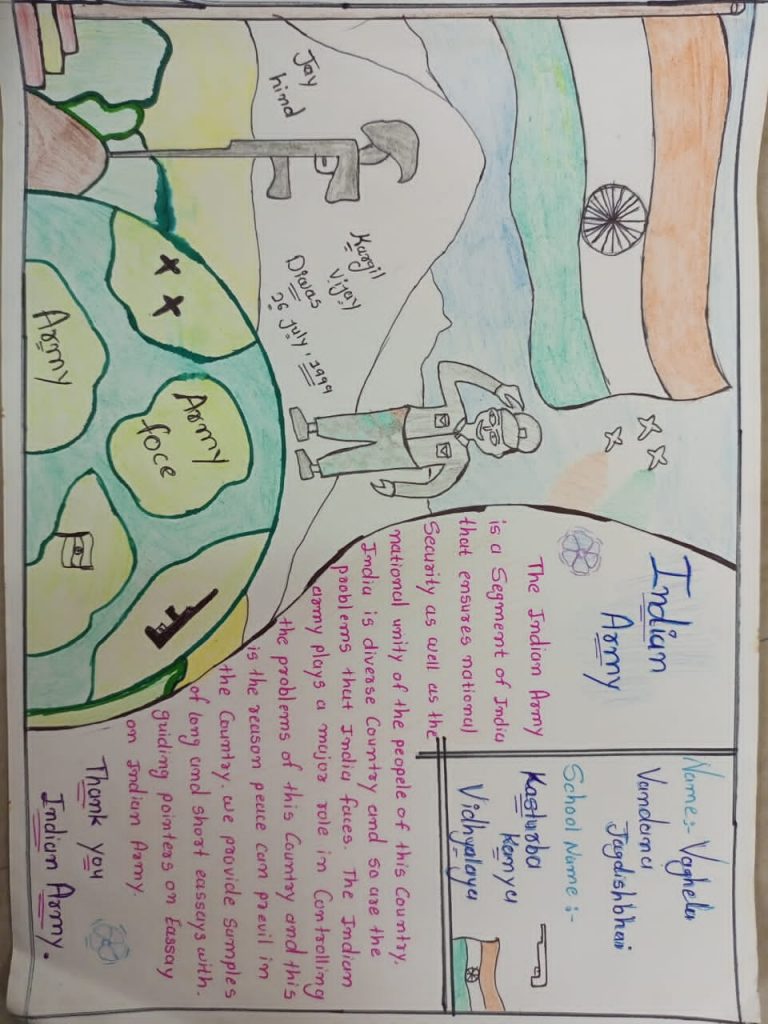 Jay
hind
Kargil
Vijay
Diwas
26 July, 1999
Army
Army
foce
Indian
Army
The Indian Army
is a Segment of India
that ensures national
Security as well as the
national unity of the peopele of this Country.
India is diverse Country and so are the
problems that India faces. The Indian
army plays a major role in Controlling
the problems of this Country and this
is the reason peace can previl in
the Country. we provide samples
of long and short eassays with.
guiding pointers on Eassay
on Indian Army.
Thank you
Indian Army.
Name:- Vaghela
Vandana
Jagdishbhai
School Name:-
Kasturba
Kanya
Vidhyalaya